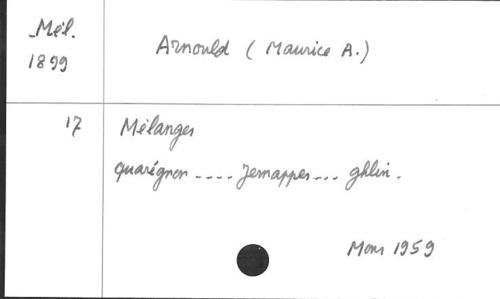 Mél.
1899
Arnould ( Maurice A.)
17
Mélanges
Quarégnon .... Jemappes ... Ghlin.
Mons 1959